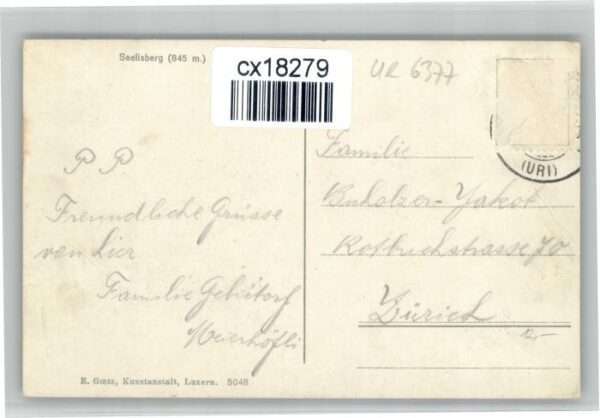 Seelisberg (845 m.)
cx18279
UR 6377
(URI)
P P
Freundliche Grüsse
von hier
Familie
Meierhöfli
Familie
Buholzer-Jakob
Rotbuchstrasse 70
Zürich
E. Goetz, Kunstanstalt, Luzern. 5048